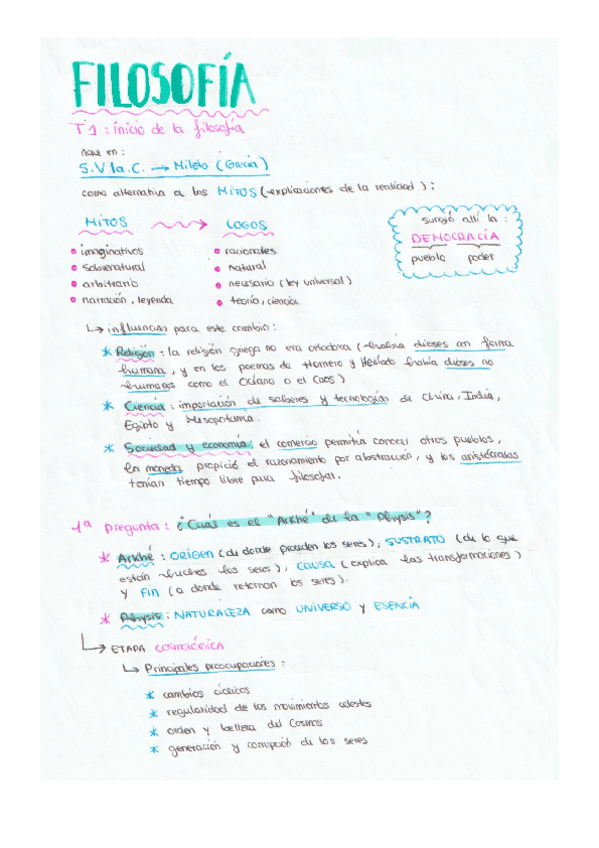 FILOSOFÍA
T1: inicio de la filosofía
nace en:
S.VI a.C. → Mileto (Grecia)
como alternativa a los MITOS (-explicaciones de la realidad):
MITOS → LOGOS
• imaginativos • racionales
• sobrenatural • natural
• arbitrario • necesario (ley universal)
• narración, leyenda • teoría, ciencia
surgió allí la:
DEMOCRACIA
pueblo poder
↳ influencias para este cambio:
* Religión: la religión griega no era ortodoxa (había dioses con forma
humana, y en los poemas de Homero y Hesíodo había dioses no
humanos como el Océano o el Caos)
* Ciencia: importación de saberes y tecnologías de China, India,
Egipto y Mesopotamia.
* Sociedad y economía: el comercio permitía conocer otros pueblos,
la moneda propició el razonamiento por abstracción, y los aristócratas
tenían tiempo libre para filosofar.
1ª pregunta: ¿Cuál es el "Arkhé" de la "Physis"?
* Arkhé: ORIGEN (de donde proceden los seres), SUSTRATO (de lo que
están hechos los seres), CAUSA (explica las transformaciones)
y FIN (a donde retornan los seres).
* Physis: NATURALEZA como UNIVERSO y ESENCIA
↳ ETAPA COSMOLÓGICA
↳ Principales preocupaciones:
* cambios cíclicos
* regularidad de los movimientos celestes
* orden y belleza del Cosmos
* generación y corrupción de los seres